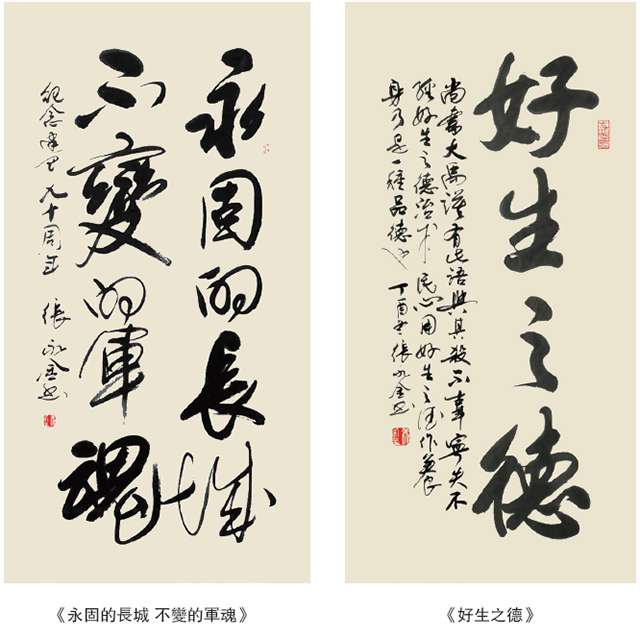 永固的長城
不變的軍魂
紀念建軍九十周年 張永金書
好生之德
尚書大禹謨有此語與其殺不辜寧失不
經好生之德洽于民心用好生之德作養
身乃是一種品德也 丁酉 張永金書
《永固的長城 不變的軍魂》
《好生之德》